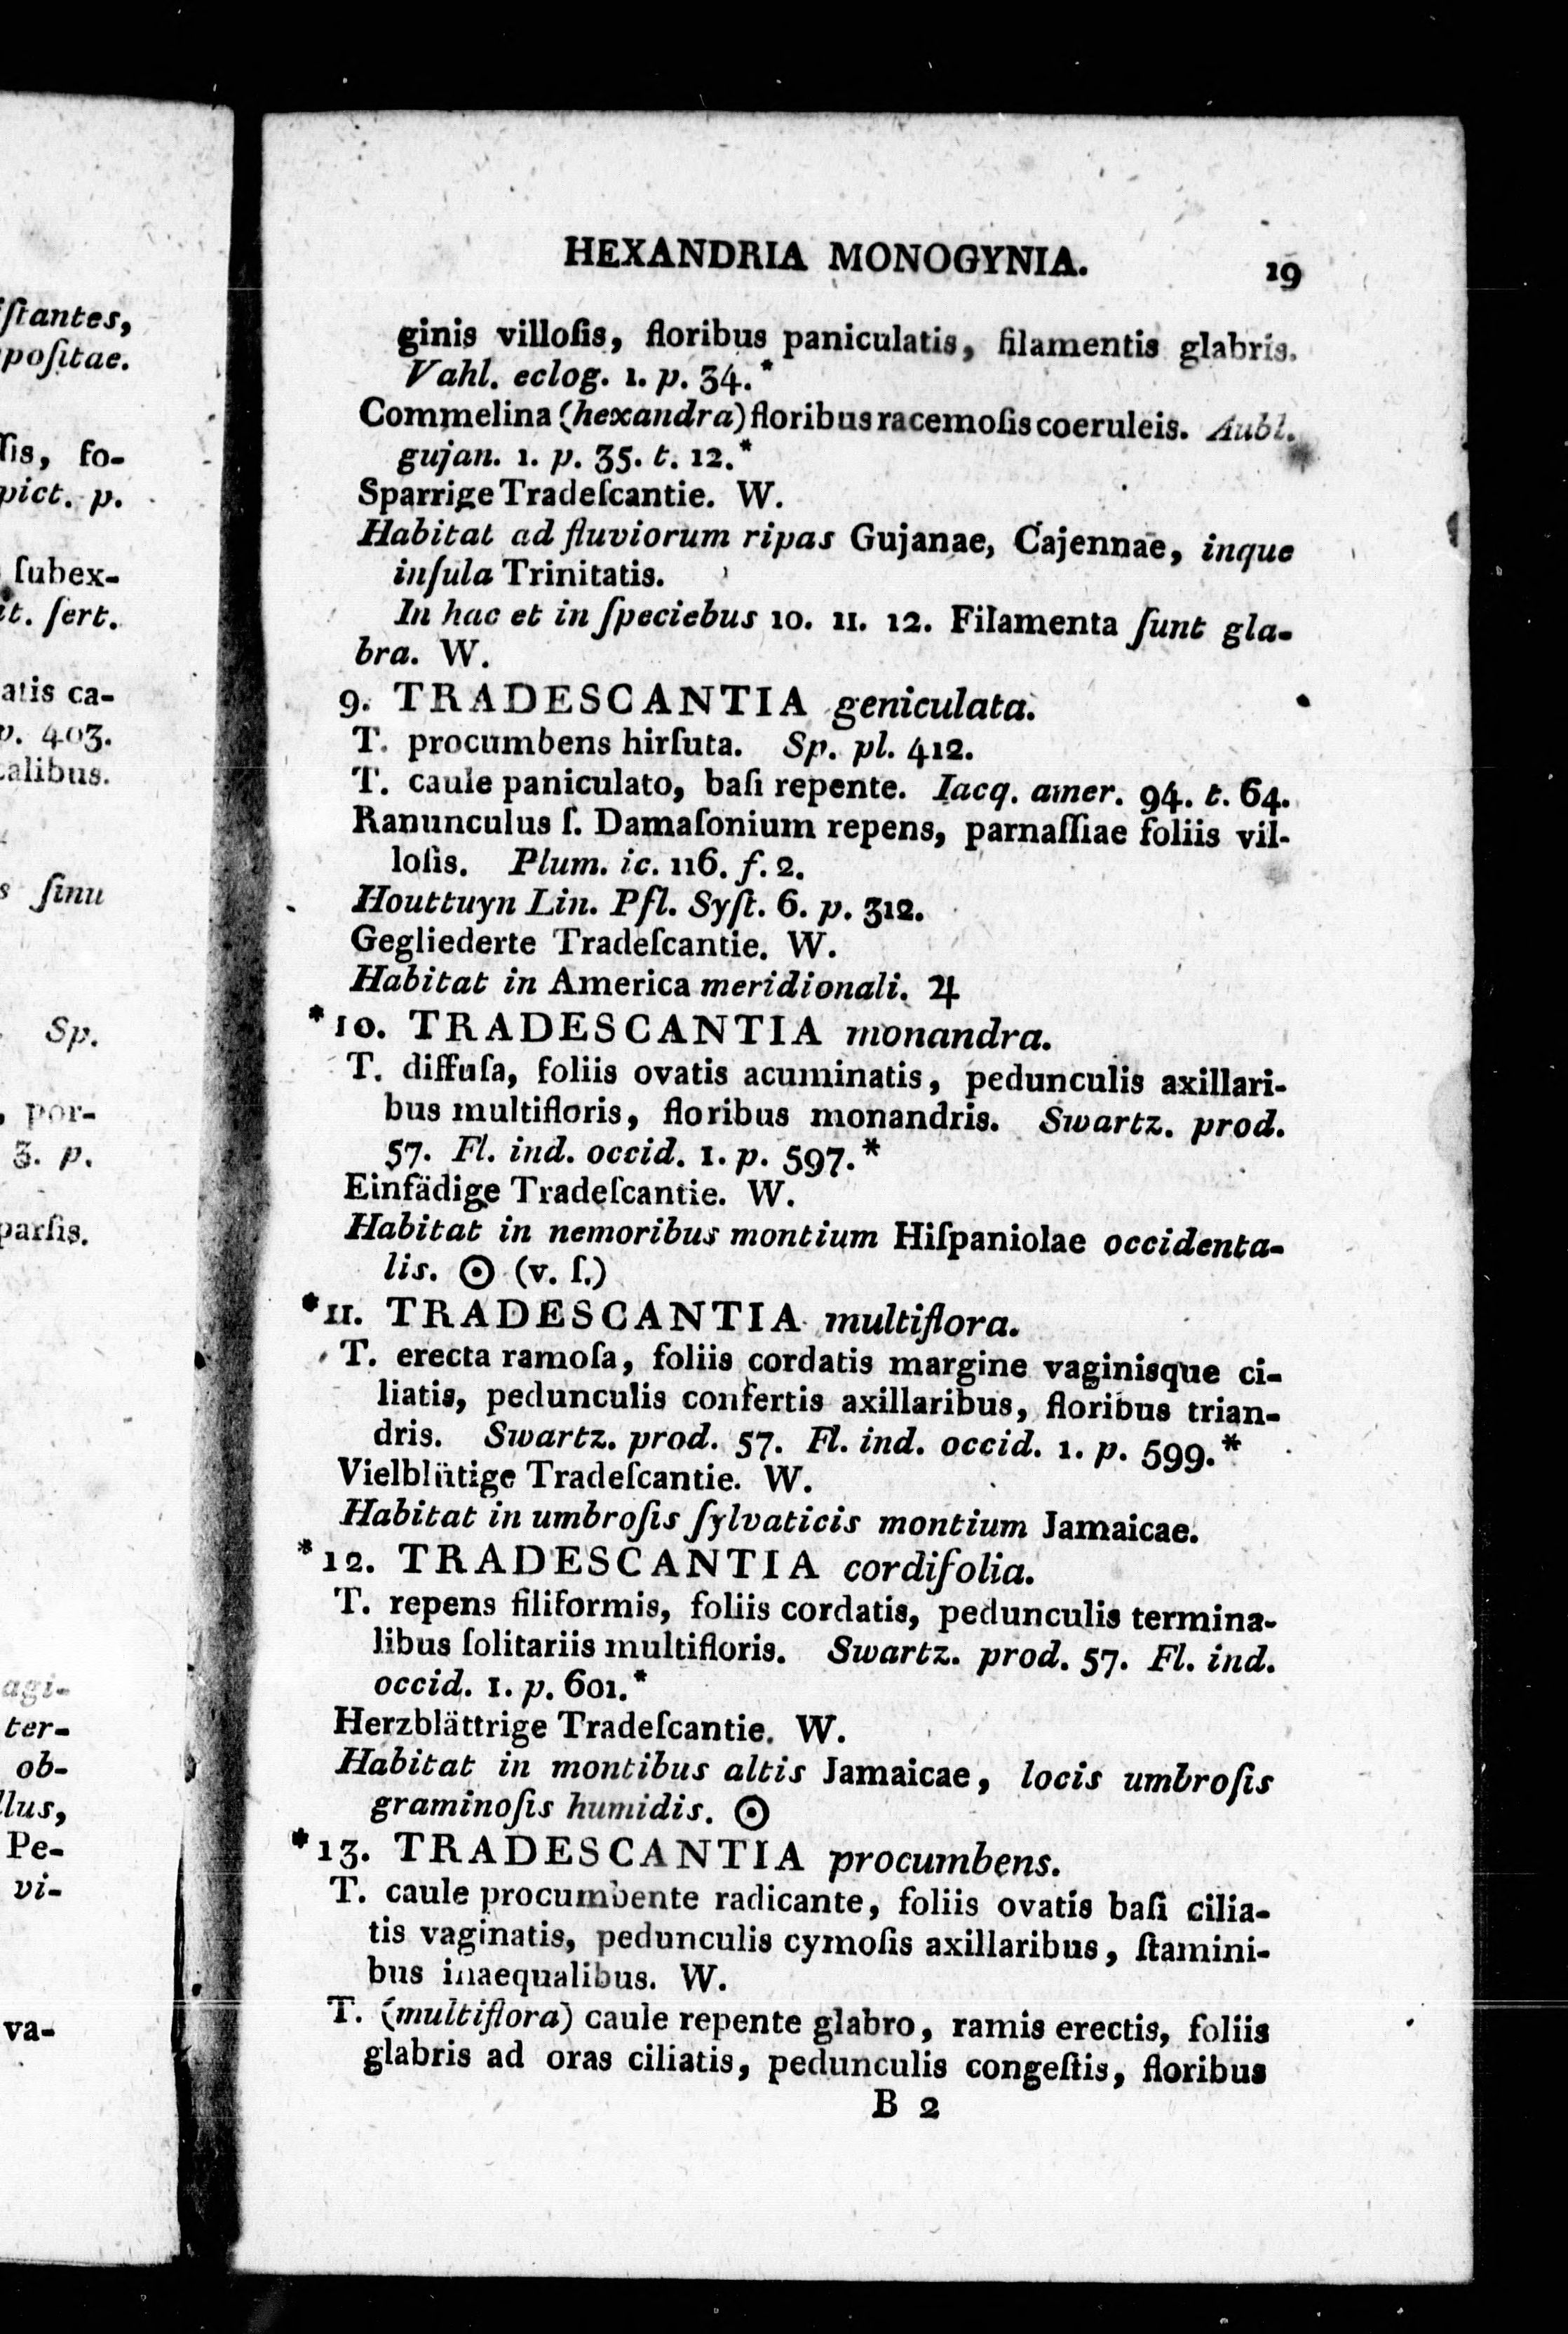 ſtantes,
poſitae.
ſis, fo-
pict. p.
ſubex-
it. ſert.
atis ca-
p. 403.
calibus.
s ſinu
Sp.
, por-
3. p.
parſis.
agi-
ter-
ob-
llus,
Pe-
vi-
va-
HEXANDRIA MONOGYNIA. 19
ginis villoſis, floribus paniculatis, filamentis glabris.
Vahl. eclog. 1. p. 34.*
Commelina (hexandra) floribus racemoſis coeruleis. Aubl.
gujan. 1. p. 35. t. 12.*
Sparrige Tradeſcantie. W.
Habitat ad fluviorum ripas Gujanae, Cajennae, inque
inſula Trinitatis.
In hac et in ſpeciebus 10. 11. 12. Filamenta ſunt gla-
bra. W.
9. TRADESCANTIA geniculata.
T. procumbens hirſuta. Sp. pl. 412.
T. caule paniculato, baſi repente. Iacq. amer. 94. t. 64.
Ranunculus ſ. Damaſonium repens, parnaſſiae foliis vil-
loſis. Plum. ic. 116. f. 2.
Houttuyn Lin. Pfl. Syſt. 6. p. 312.
Gegliederte Tradeſcantie. W.
Habitat in America meridionali. ♃
*10. TRADESCANTIA monandra.
T. diffuſa, foliis ovatis acuminatis, pedunculis axillari-
bus multifloris, floribus monandris. Swartz. prod.
57. Fl. ind. occid. 1. p. 597.*
Einfädige Tradeſcantie. W.
Habitat in nemoribus montium Hiſpaniolae occidenta-
lis. ☉ (v. ſ.)
*11. TRADESCANTIA multiflora.
T. erecta ramoſa, foliis cordatis margine vaginisque ci-
liatis, pedunculis confertis axillaribus, floribus trian-
dris. Swartz. prod. 57. Fl. ind. occid. 1. p. 599.*
Vielblütige Tradeſcantie. W.
Habitat in umbroſis ſylvaticis montium Jamaicae.
*12. TRADESCANTIA cordifolia.
T. repens filiformis, foliis cordatis, pedunculis termina-
libus ſolitariis multifloris. Swartz. prod. 57. Fl. ind.
occid. 1. p. 601.*
Herzblättrige Tradeſcantie. W.
Habitat in montibus altis Jamaicae, locis umbroſis
graminoſis humidis. ☉
*13. TRADESCANTIA procumbens.
T. caule procumbente radicante, foliis ovatis baſi cilia-
tis vaginatis, pedunculis cymoſis axillaribus, ſtamini-
bus inaequalibus. W.
T. (multiflora) caule repente glabro, ramis erectis, foliis
glabris ad oras ciliatis, pedunculis congeſtis, floribus
B 2